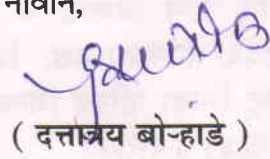 नावाने,
( दत्तात्रय बोऱ्हाडे )